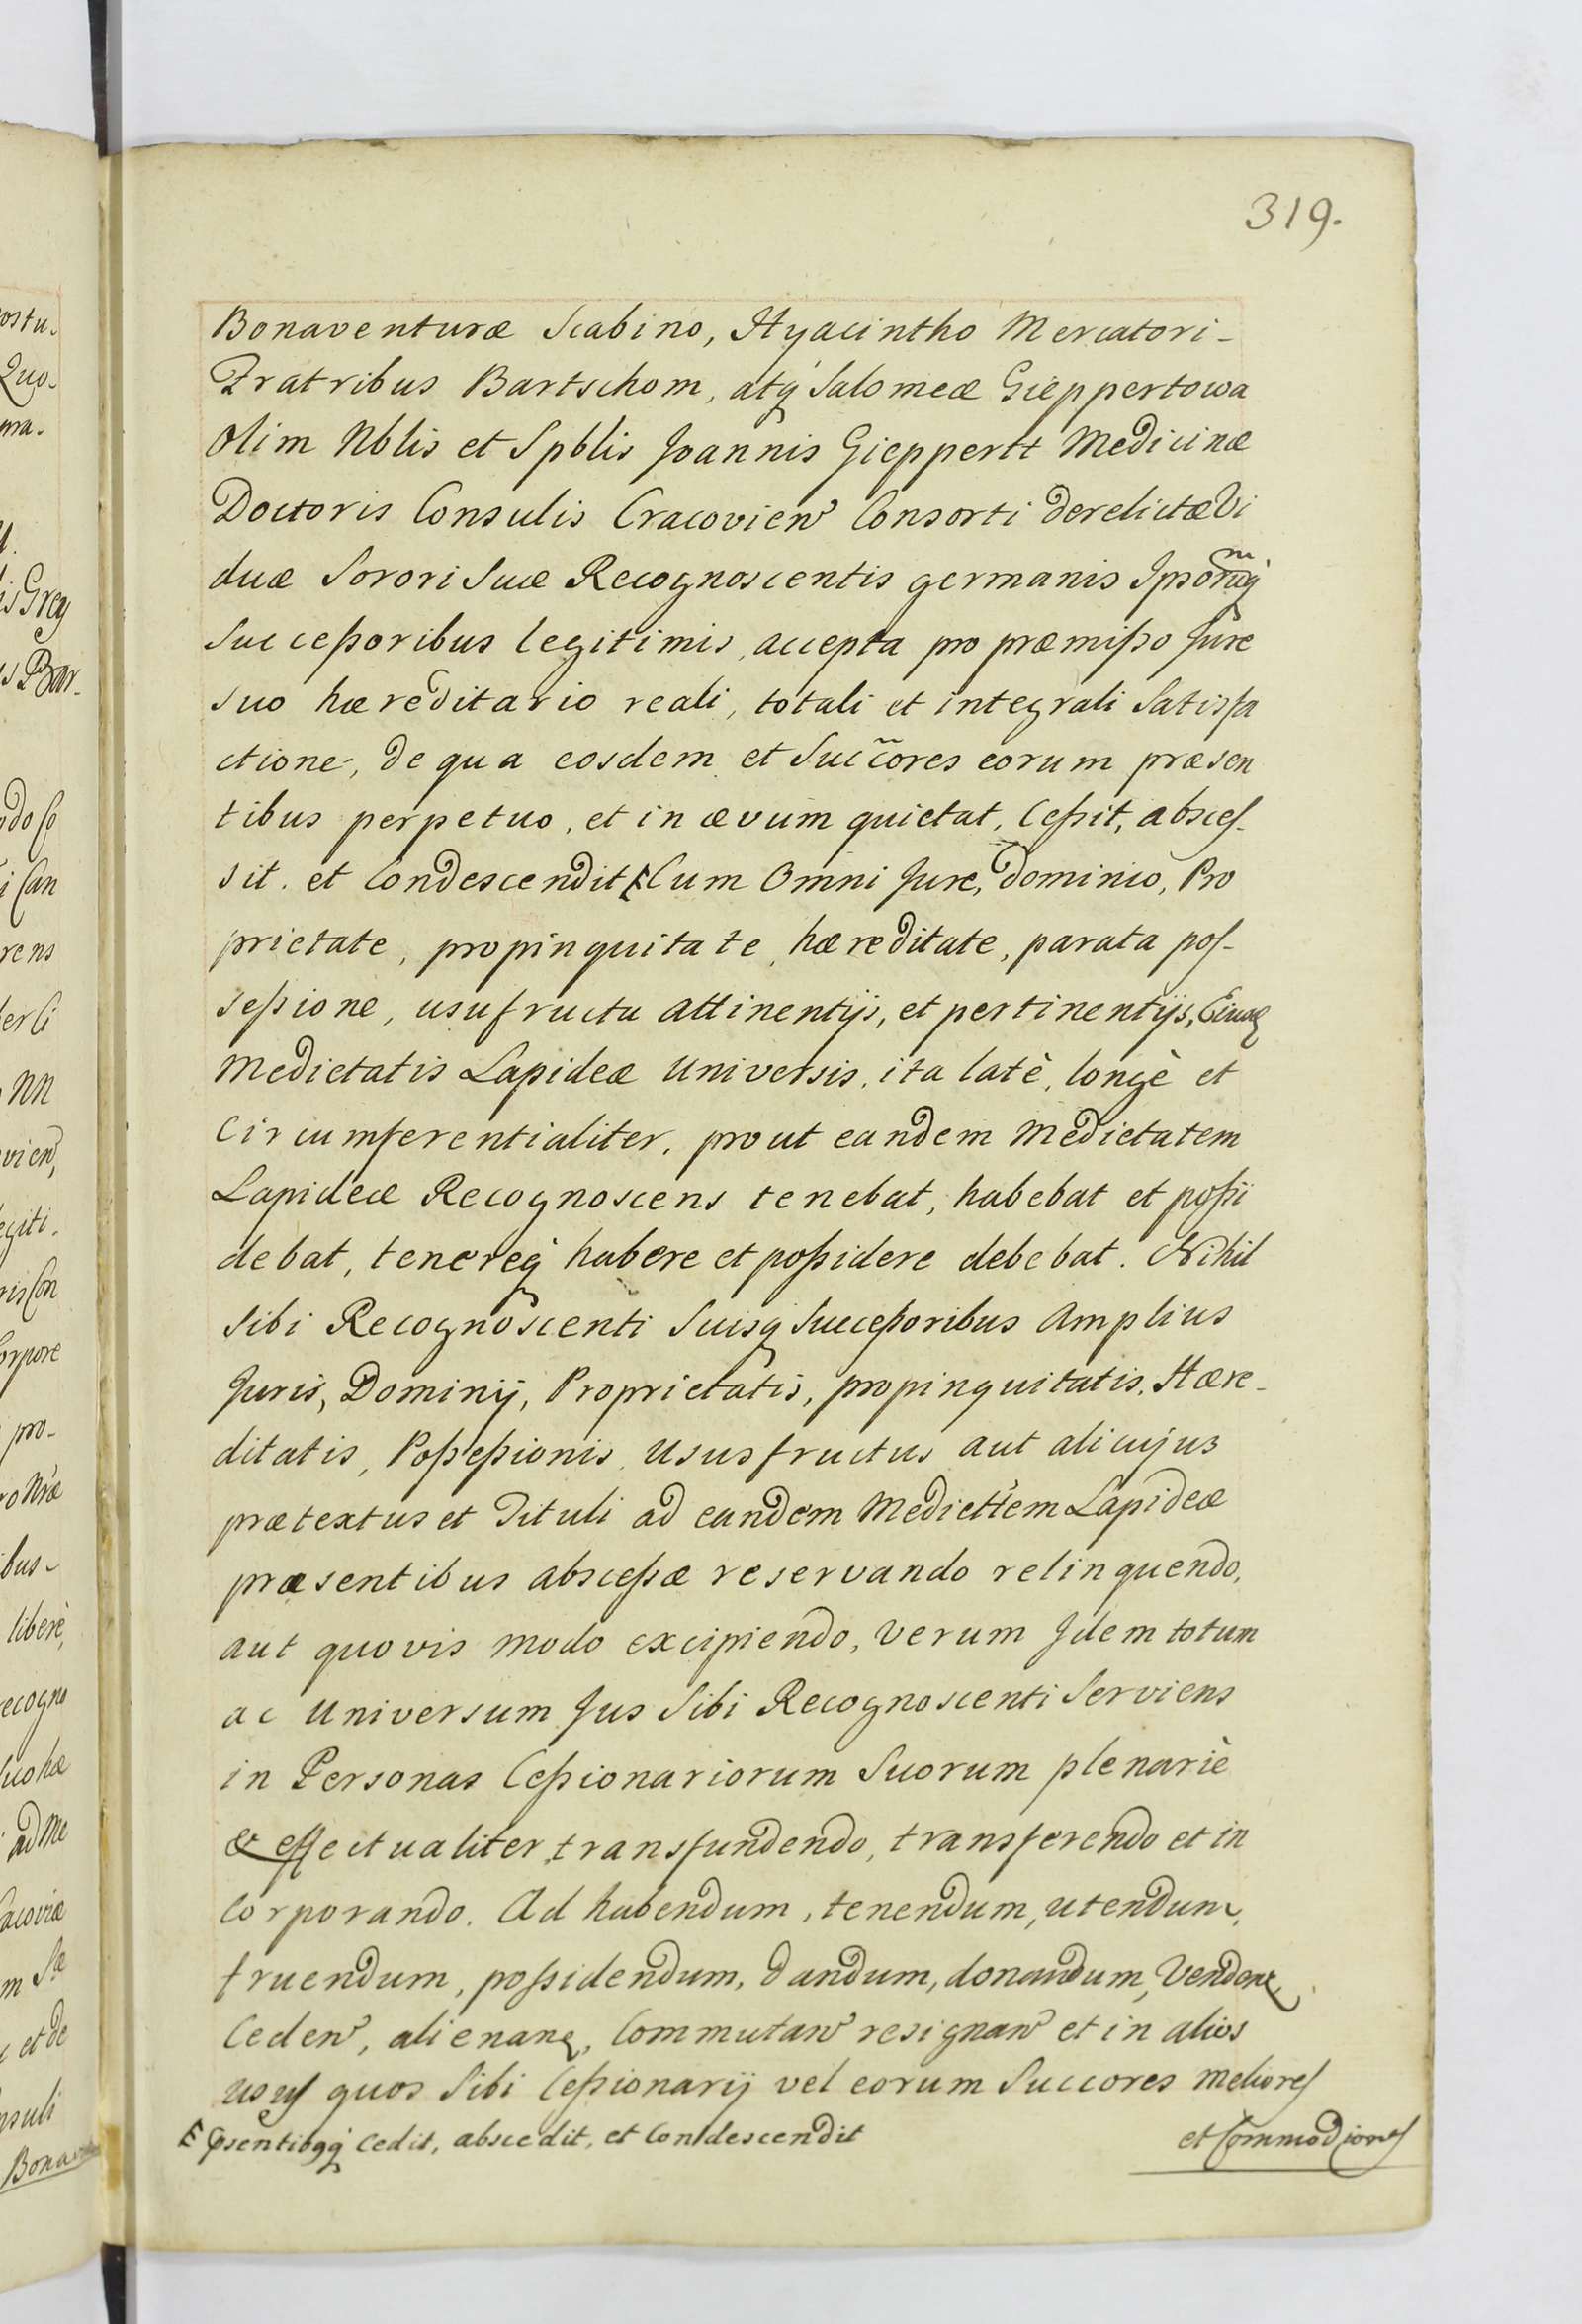 319.
Bonaventuræ Scabino, Hyacintho Mercatori-
Fratribus Bartschom, atq́ Salomeæ Gieppertowa
Olim Nblis et Spblis Joannis Gieppertt Medicinæ
Doctoris Consulis Cracovien̄ Consorti derelictæ Vi
duæ Sorori Suæ Recognoscentis germanis Ipsorumq́
Succeßoribus legitimis, accepta pro præmißo Jure
suo hæreditario reali, totali et integrali Satisfa
ctione, de qua eosdem et Succ̃ores eorum præsen
tibus perpetuo, et in ævum quietat, Ceßit, absces-
sit. et Condescendit Cum Omni Jure, dominio, Pro
prietate, propinquitate, hæreditate, parata pos-
seßione, usufructu attinentijs, et pertinentijs,
Medietatis Lapideæ Universis, ita latè, longè et
Circumferentialiter, prout eandem Medietatem
Lapideæ Recognoscens tenebat, habebat et poßi
debat, tenereq́ habere et poßidere debebat. Nihil
Sibi Recognoscenti Suisq́ Succeßoribus Amplius
Juris, Dominij, Proprietatis, propinquitatis, Hære-
ditatis, Poßeßionis, Ususfructus aut alicujus
prætextus et Tituli ad eandem Mediett̃em Lapideæ
præsentibus absceßæ reservando relinquendo,
aut quovis modo excipiendo, Verum Idem totum
ac Universum Jus Sibi Recognoscenti Serviens
in Personas Ceßionariorum Suorum plenariè
& effectualiter transfundendo, transferendo et in
Corporando. Ad habendum, tenendum, utendum,
fruendum, poßidendum, dandum, donandum, Vendenꝝ
Ceden̄, alienanꝝ, Commutan̄ resignan̄ et in alios
usus quos Sibi Ceßionarij vel eorum Succores meliores
Ɛ p̄sentibꝯq́ Cedit, abscedit, et Condescendit
et Commodiores
ostu-
Quo-
ma.
is Grey
s Bar-
do Co
i Can
rens
er Ci
NN
vien̄,
egiti-
ris Con
Corpore
pro-
o Nræ
ibus-
liberè,
ecogno
suo hæ
ad Me
acoviæ
m Sæ
et de
nsuli
Bona